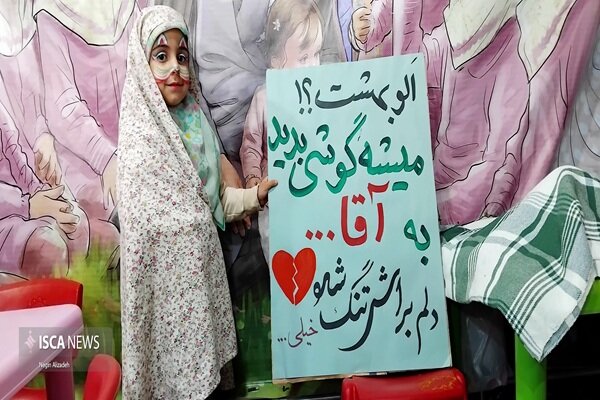 اَلو بهشت ؟!
میشه گوشی بدید
به آقا...
دلم براش تنگ شده
خیلی...
ISCA NEWS
Negin Alizadeh